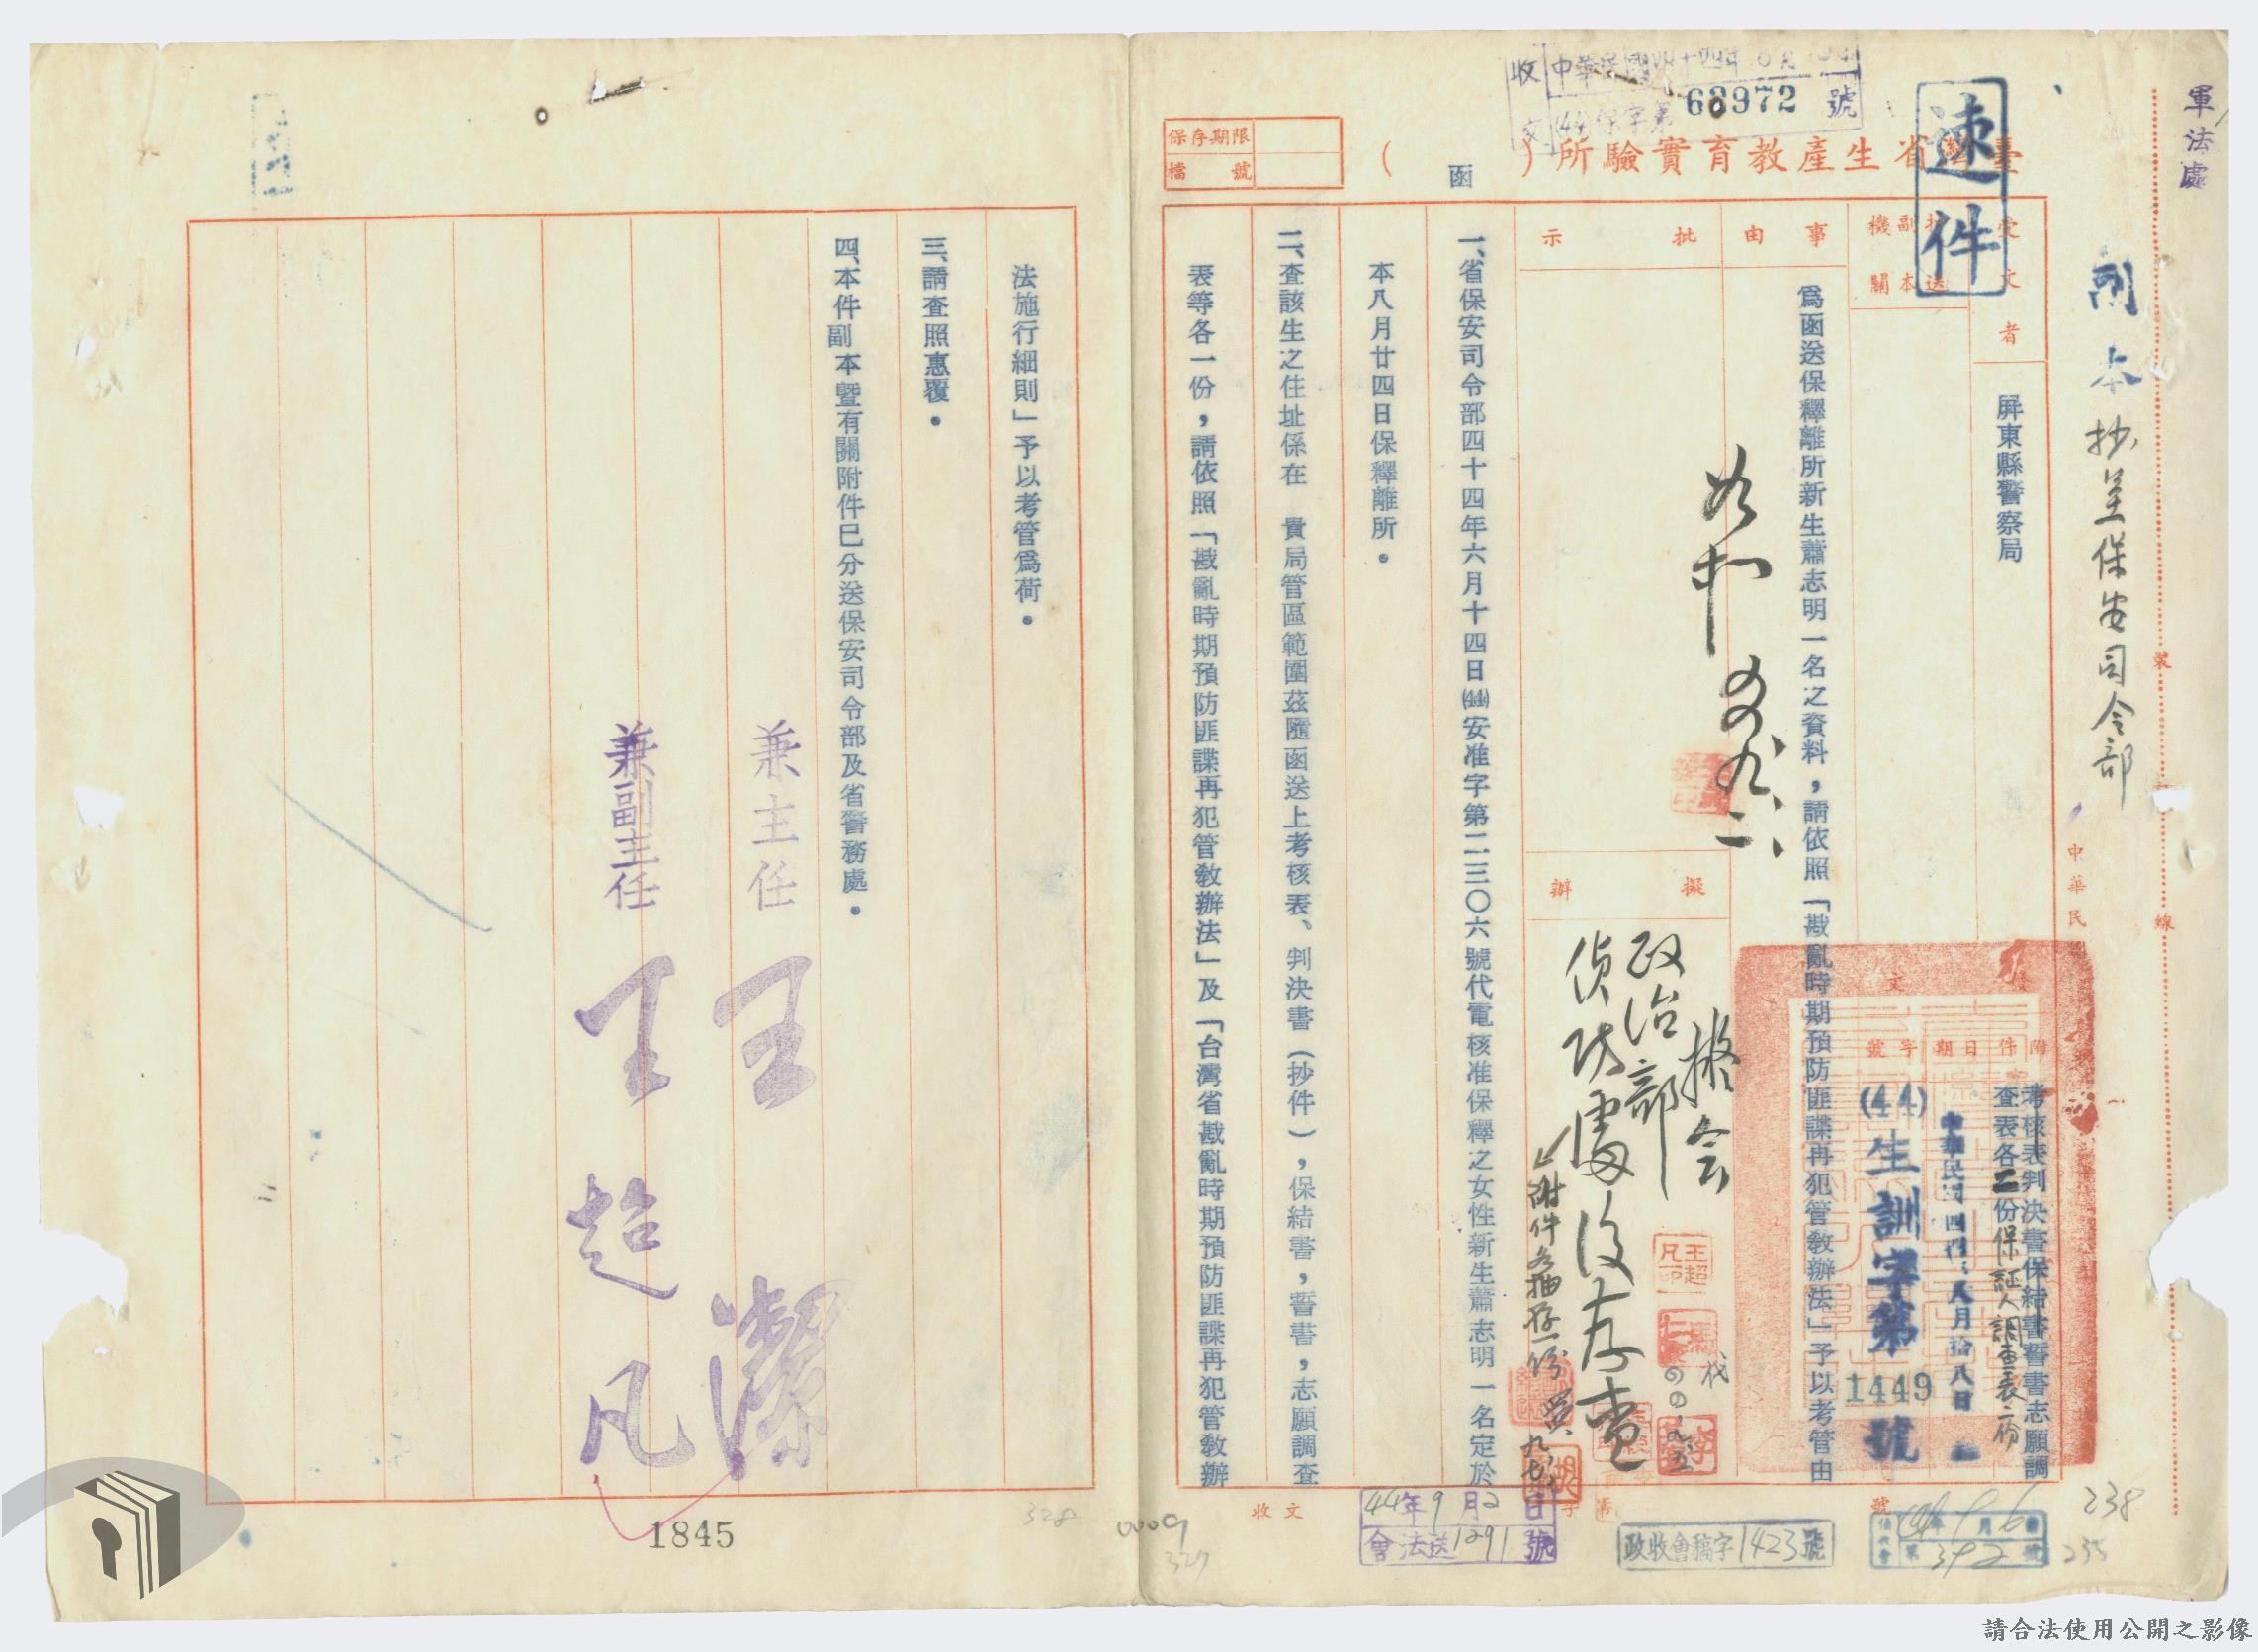 軍法處
速件
副本 抄呈保安司令部
收文 中華民國四十四年8月
(44)保字第 68972 號
臺灣省生產教育實驗所（函）
保存期限
檔號
受文者
屏東縣警察局
抄副本送機關
事由
為函送保釋離所新生蕭志明一名之資料，請依照「戡亂時期預防匪諜再犯管教辦法」予以考管由
附件
考核表判決書保結書誓書志願調查表各二份保証人調查表二份
日期
中華民國四四年八月拾八日
字號
(44)生訓字第1449號
批示
擬辦
擬會
政治部
偵防處後存查
附件各抽存一份
一、省保安司令部四十四年六月十四日(44)安准字第二三〇六號代電核准保釋之女性新生蕭志明一名定於
本八月廿四日保釋離所。
二、查該生之住址係在　貴局管區範圍茲隨函送上考核表、判決書（抄件），保結書，誓書，志願調查
表等各一份，請依照「戡亂時期預防匪諜再犯管教辦法」及「台灣省戡亂時期預防匪諜再犯管教辦
法施行細則」予以考管為荷。
三、請查照惠覆。
四、本件副本暨有關附件已分送保安司令部及省警務處。
兼主任 王潔
兼副主任 王超凡
裝
線
中華民
收文
44年9月2日
會法送1291號
政收會稿字1423號
44 9 6
392
238
235
328
0009
327
1845
請合法使用公開之影像